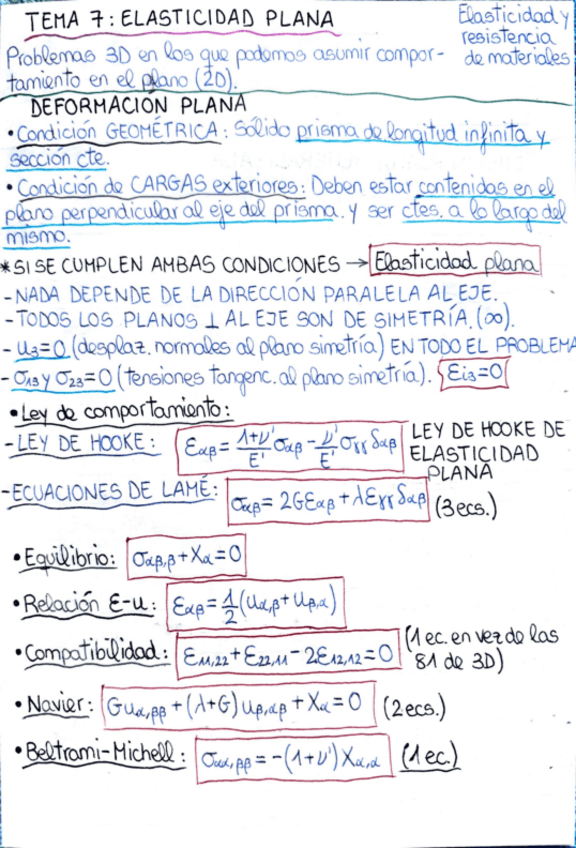 TEMA 7: ELASTICIDAD PLANA
Elasticidad y
resistencia
de materiales
Problemas 3D en los que podemos asumir compor-
tamiento en el plano (2D).
DEFORMACIÓN PLANA
• Condición GEOMÉTRICA: Sólido prisma de longitud infinita y
sección cte.
• Condición de CARGAS exteriores: Deben estar contenidas en el
plano perpendicular al eje del prisma. y ser ctes. a lo largo del
mismo.
* SI SE CUMPLEN AMBAS CONDICIONES → Elasticidad plana
- NADA DEPENDE DE LA DIRECCIÓN PARALELA AL EJE.
- TODOS LOS PLANOS ⊥ AL EJE SON DE SIMETRÍA. (∞).
- u₃=0 (desplaz. normales al plano simetría) EN TODO EL PROBLEMA
- σ₁₃ y σ₂₃=0 (tensiones tangenc. al plano simetría). { εi₃=0
• Ley de comportamiento:
- LEY DE HOOKE: εαβ = 1+ν'/E' σαβ - ν'/E' σγγ δαβ LEY DE HOOKE DE
ELASTICIDAD
PLANA
- ECUACIONES DE LAMÉ: σαβ = 2Gεαβ + λεγγ δαβ (3 ecs.)
• Equilibrio: σαβ,β + Xα = 0
• Relación ε-u: εαβ = 1/2 (uα,β + uβ,α)
• Compatibilidad: ε₁₁,₂₂ + ε₂₂,₁₁ - 2ε₁₂,₁₂ = 0 (1 ec. en vez de las
81 de 3D)
• Navier: Guα,ββ + (λ+G) uβ,αβ + Xα = 0 (2 ecs.)
• Beltrami-Michell: σαα,ββ = -(1+ν') Xα,α (1 ec.)